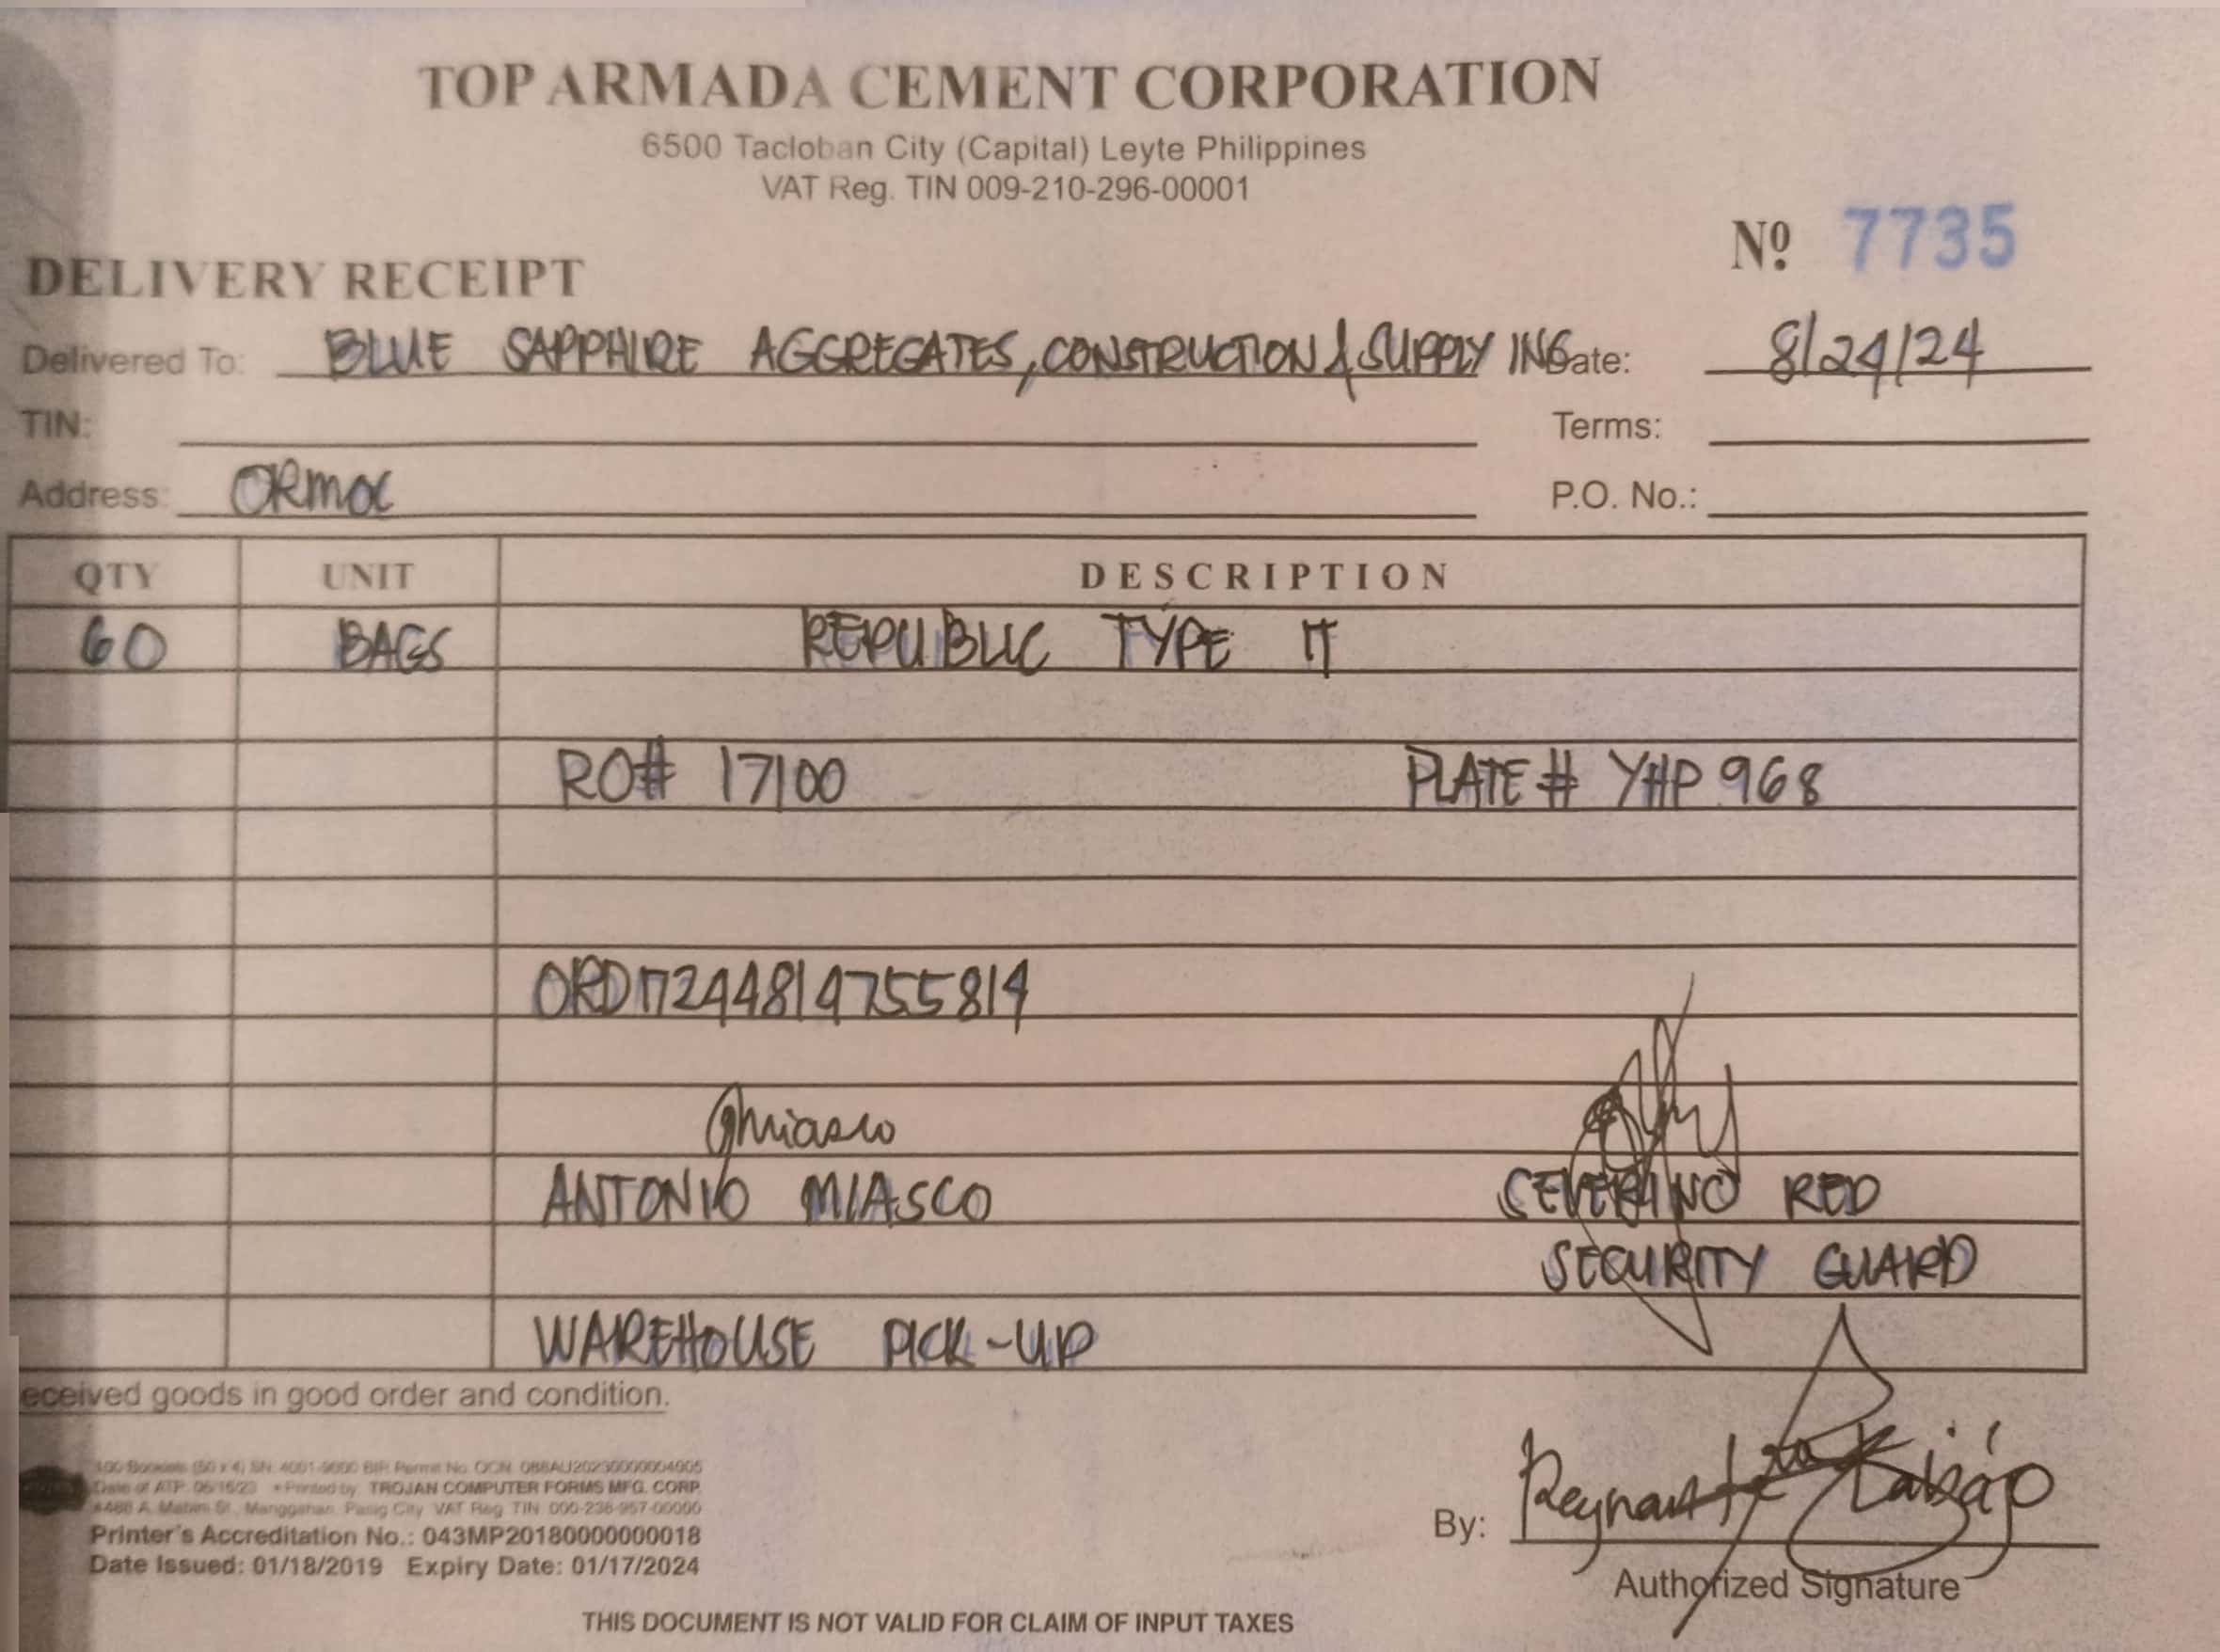 TOP ARMADA CEMENT CORPORATION
6500 Tacloban City (Capital) Leyte Philippines
VAT Reg. TIN 009-210-296-00001
Nº 7735
DELIVERY RECEIPT
Delivered To: BLUE SAPPHIRE AGGREGATES, CONSTRUCTION & SUPPLY INC Date: 8/24/24
TIN: Terms:
Address: ORMOC P.O. No.:
QTY UNIT DESCRIPTION
60 BAGS REPUBLIC TYPE IT
RO# 17100 PLATE # YHP 968
ORD1724481475814
Amiasco
ANTONIO MIASCO SEVERINO RED
SECURITY GUARD
WAREHOUSE PICK-UP
eceived goods in good order and condition.
100 Booklets (50 x 4) SN: 4001-9000 BIR Permit No. OCN 088AU20230000004005
Date of ATP: 06/16/23 • Printed by: TROJAN COMPUTER FORMS MFG. CORP.
#486 A. Mabini St., Manggahan, Pasig City VAT Reg TIN 000-236-957-00000
Printer's Accreditation No.: 043MP20180000000018
Date Issued: 01/18/2019 Expiry Date: 01/17/2024
By:
Authorized Signature
THIS DOCUMENT IS NOT VALID FOR CLAIM OF INPUT TAXES